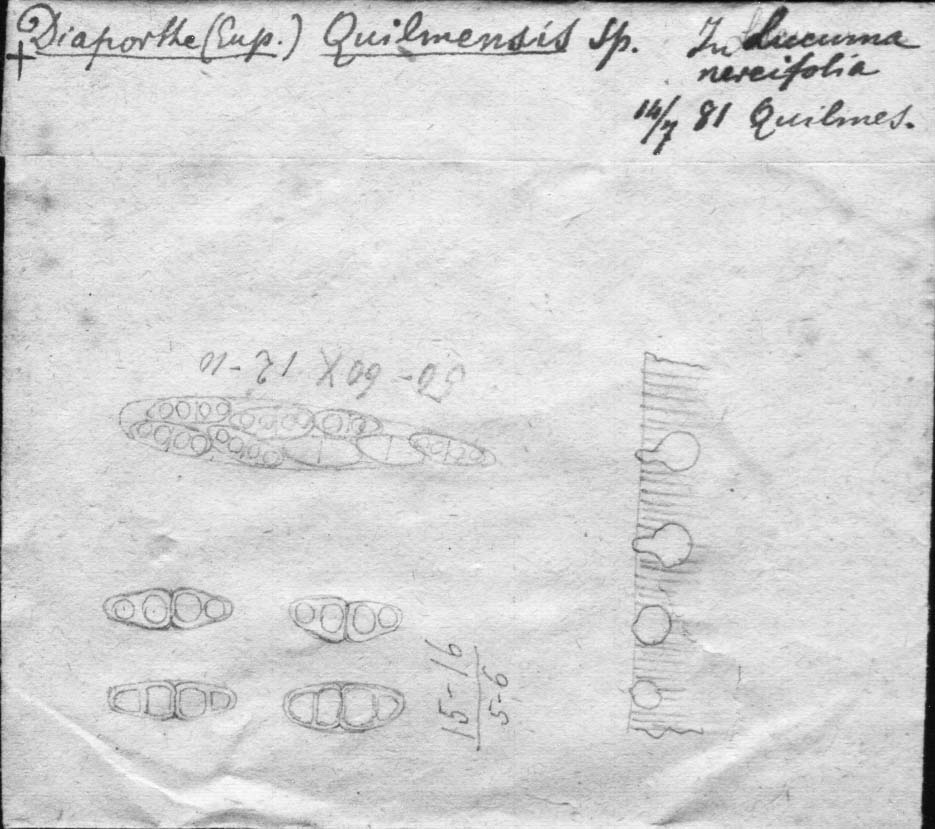 Diaporthe (Eup.) Quilmensis Sp.
In Lucuma
nereifolia
14/7 81 Quilmes.
50-60 X 12-10
15-16
5-6